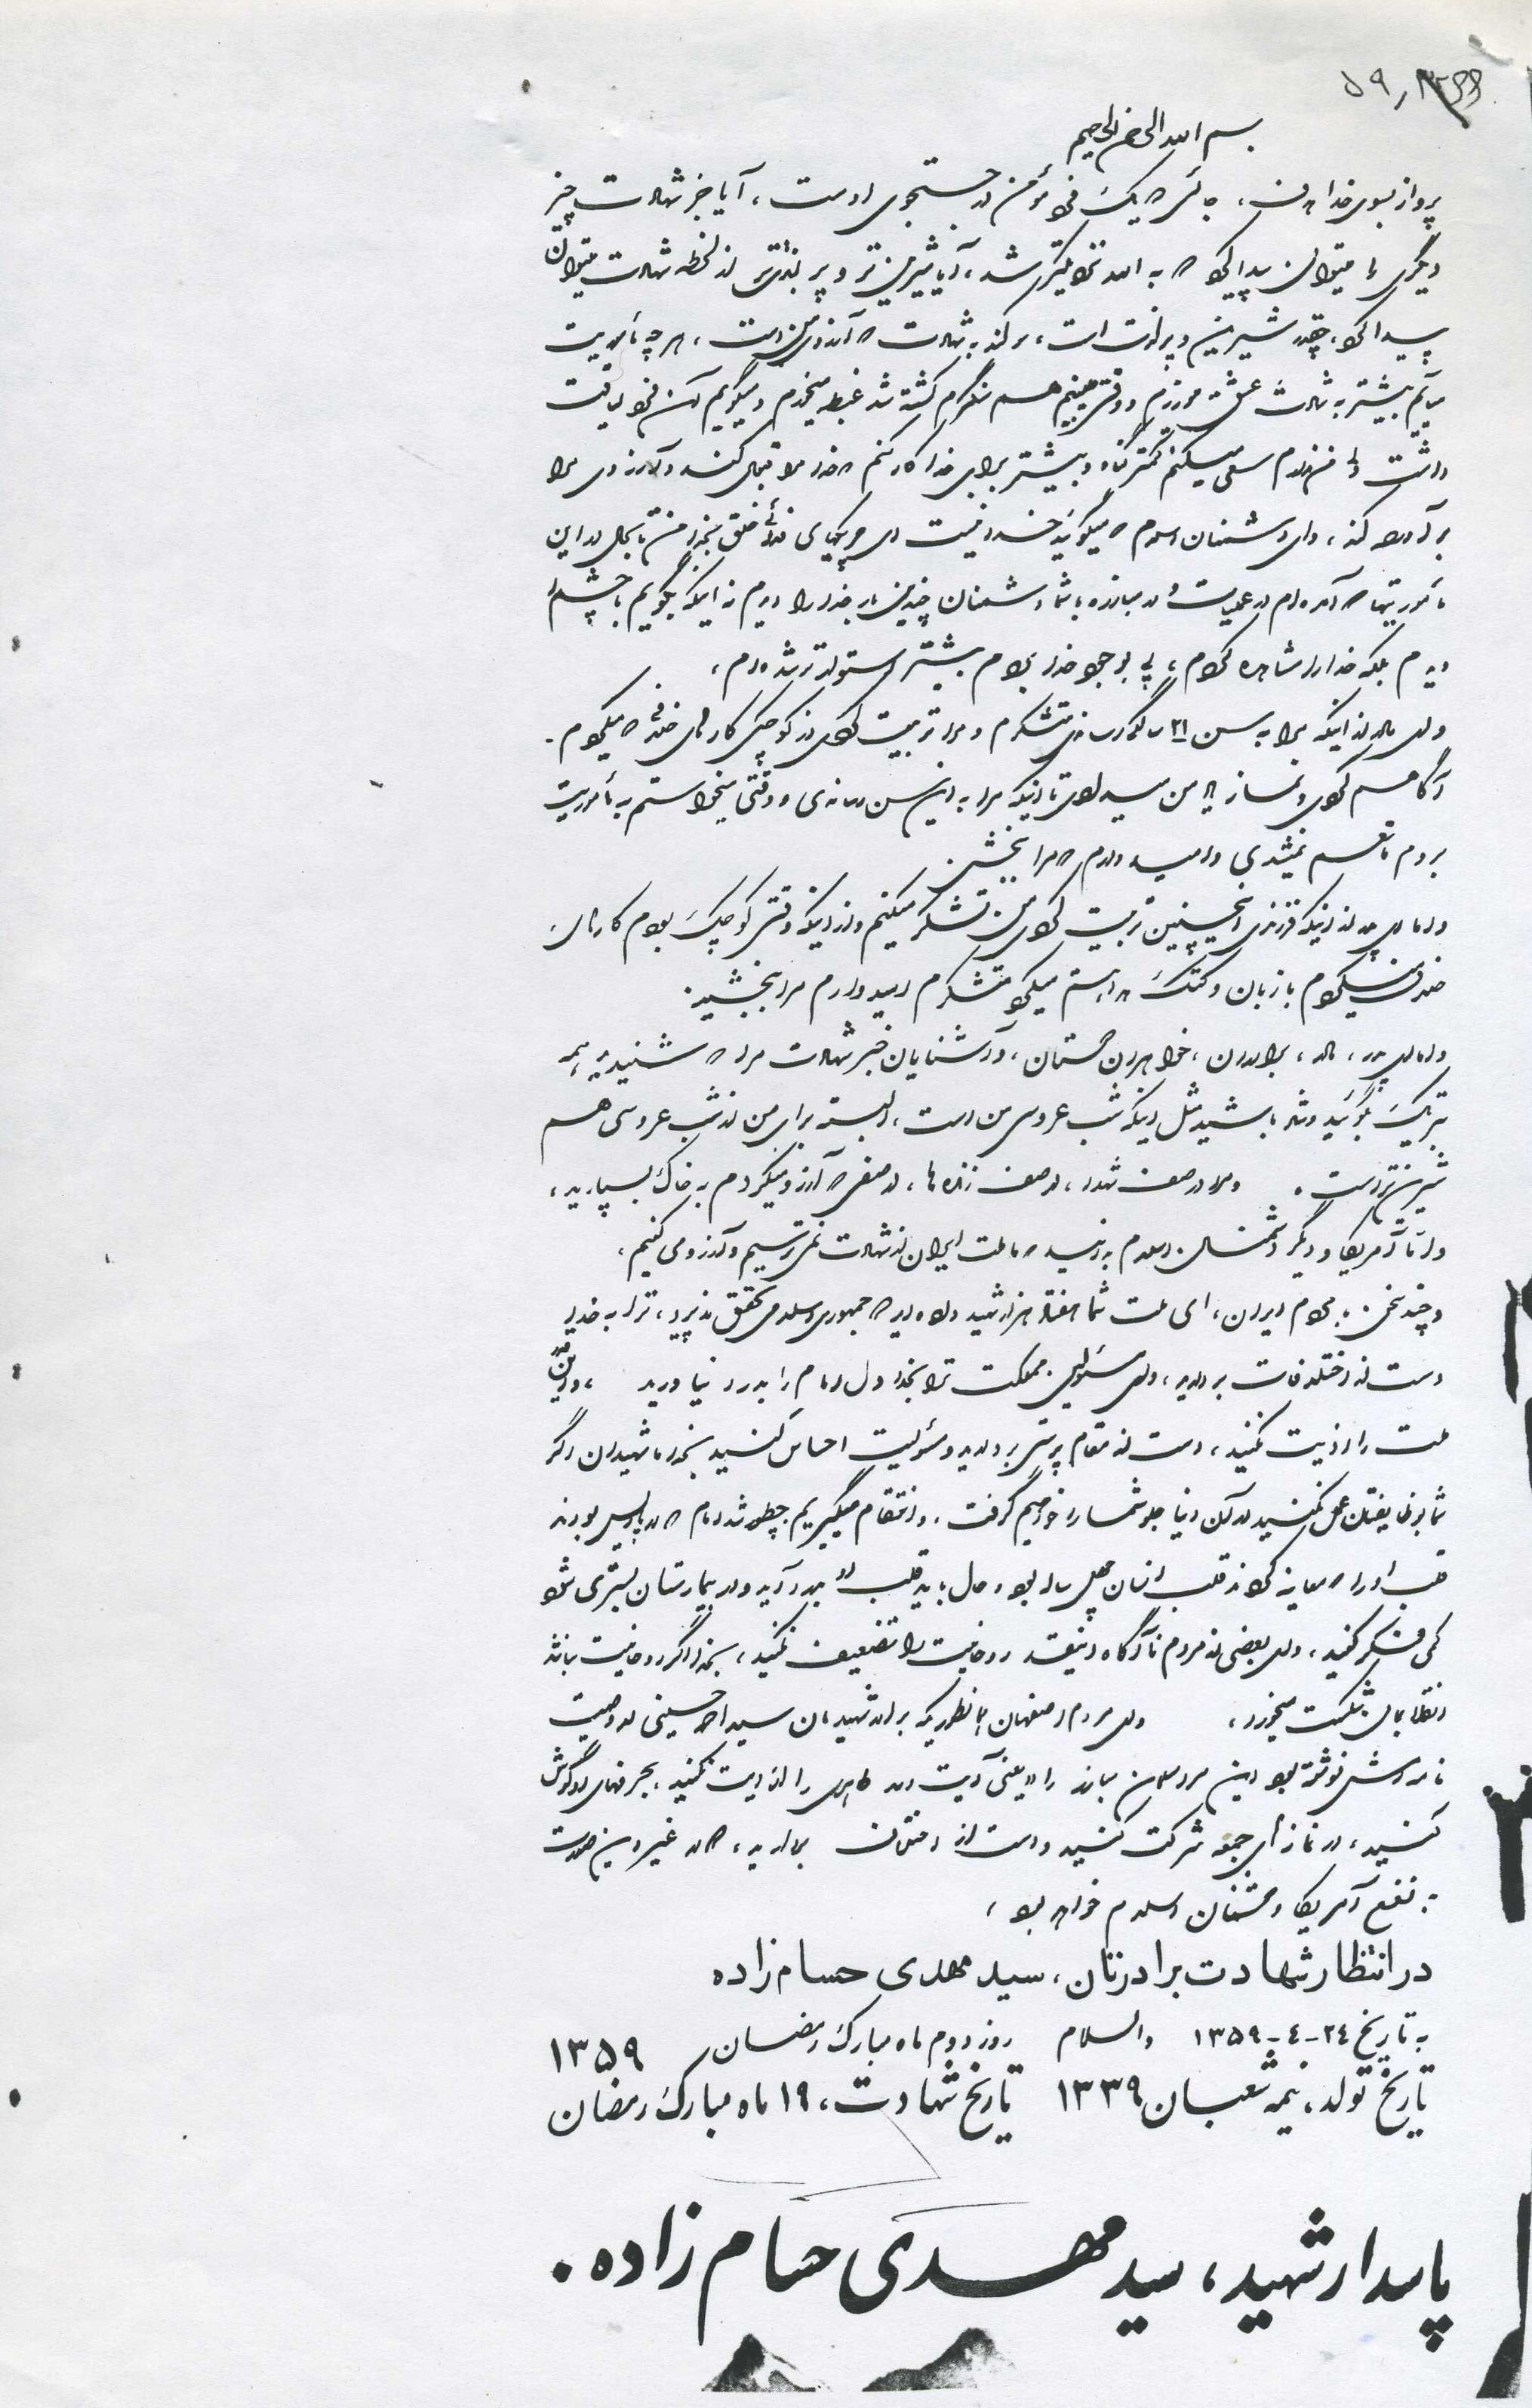 بسم الله الرحمن الرحیم
پرواز بسوی خدا شدن، جائی که یک فرد مؤمن در جستجوی اوست، آیا جز شهادت چیز
دیگری را میتوان پیدا کرد که به الله نزدیکتر شد، آیا شیرین تر و پر لذت تر از لحظه شهادت میتوان
پیدا کرد، چقدر شیرین و پر لذت است، سوگند به شهادت که آرزوی من است، هر چه مأموریت
میآیم بیشتر به شهادت عشق میورزم و وقتی میبینم هم سنگرم کشته شد غبطه میخورم و میگویم آن فرد لیاقت
داشت ولی من ندارم سعی میکنم کمتر گناه و بیشتر برای خدا کار کنم که خدا مرا قبول کند و آرزوی مرا
برآورده کند، وای دشمنان اسلام که میگویند خدا نیست ای چریکهای فدائی خلق بخدا من تا بحال در این
مأموریتها که آمده ام در عملیات و در مبارزه با شما دشمنان چندین بار خدا را دیدم نه اینکه بگویم با چشم
دیدم بلکه خدا را مشاهده کردم، پی بوجود خدا بردم بیشتر استوارتر شده ام،
ولی مادر از اینکه مرا به سن ۲۱ سالگی رساندی متشکرم و مرا تربیت کردی از کوچکی کارهای خلاف که میکردم.
آگاهم کردی و نماز به من یاد دادی تا اینکه مرا به این سن رساندی و وقتی میخواستم به مأموریت
بروم مانعم نمیشدی و امیدوارم که مرا ببخشی
و اما ای پدر از اینکه فرزندی اینچنین تربیت کردی من تشکر میکنم و از اینکه وقتی کوچک بودم کارهای
خلاف میکردم با زبان و کتک هدایتم میکردی متشکرم امیدوارم مرا ببخشید.
و اما ای پدر، مادر، برادران، خواهران دوستان، و آشنایان خبر شهادت مرا که شنیدید بهم
تبریک بگوئید و شاد باشید مثل اینکه شب عروسی من است، البته برای من از شب عروسی هم
شیرین تر است. و مرا در صف شهدا، در صف زنده ها، در صفی که آرزو میکردم به خاک بسپارید،
و اما آمریکا و دیگر دشمنان اسلام بدانید که ما ملت ایران از شهادت نمی ترسیم و آرزو می کنیم،
و چند سخن به مردم ایران، ای ملت شما هفتاد هزار شهید داده اید که جمهوری اسلامی تحقق پذیرد، ترا به خدا
دست از اختلافات بردارید، ولی مسئولین مملکت ترا بخدا دل امام را بدرد نیاورید، و این قدر
ملت را اذیت نکنید، دست از مقام پرستی بردارید و مسئولیت احساس کنید بخدا ما شهیدان اگر
شما بوظایفتان عمل نکنید در آن دنیا جلو شما را خواهیم گرفت. و انتقام میگیریم چطور شد امام که در پاریس بودند
قلب او را که معاینه کردند قلب انسان چهل ساله بود و حال باید قلب او بدرد آید و در بیمارستان بستری شود
کمی فکر کنید، ولی بعضی از مردم ناآگاه اینقدر روحانیت را تضعیف نکنید، بخدا اگر روحانیت نباشد
انقلابمان شکست میخورد، ولی مردم اصفهان همانطوریکه برادر شهیدمان سید احمد حسینی در وصیت
نامه اش نوشته بود این مرد مسلمان مبارز را یعنی آیت الله طاهری را اذیت نکنید. بحرفهای او گوش
کنید، در نمازهای جمعه شرکت کنید و دست از بردارید، که در غیر این صورت
به نفع آمریکا و دشمنان اسلام خواهد بود،
در انتظار شهادت برادرتان، سید مهدی حسام زاده
به تاریخ ۲۴-۴-۱۳۵۹ والسلام روز دوم ماه مبارک رمضان ۱۳۵۹
تاریخ تولد، نیمه شعبان ۱۳۳۹ تاریخ شهادت، ۱۹ ماه مبارک رمضان
پاسدار شهید، سید مهدی حسام زاده.